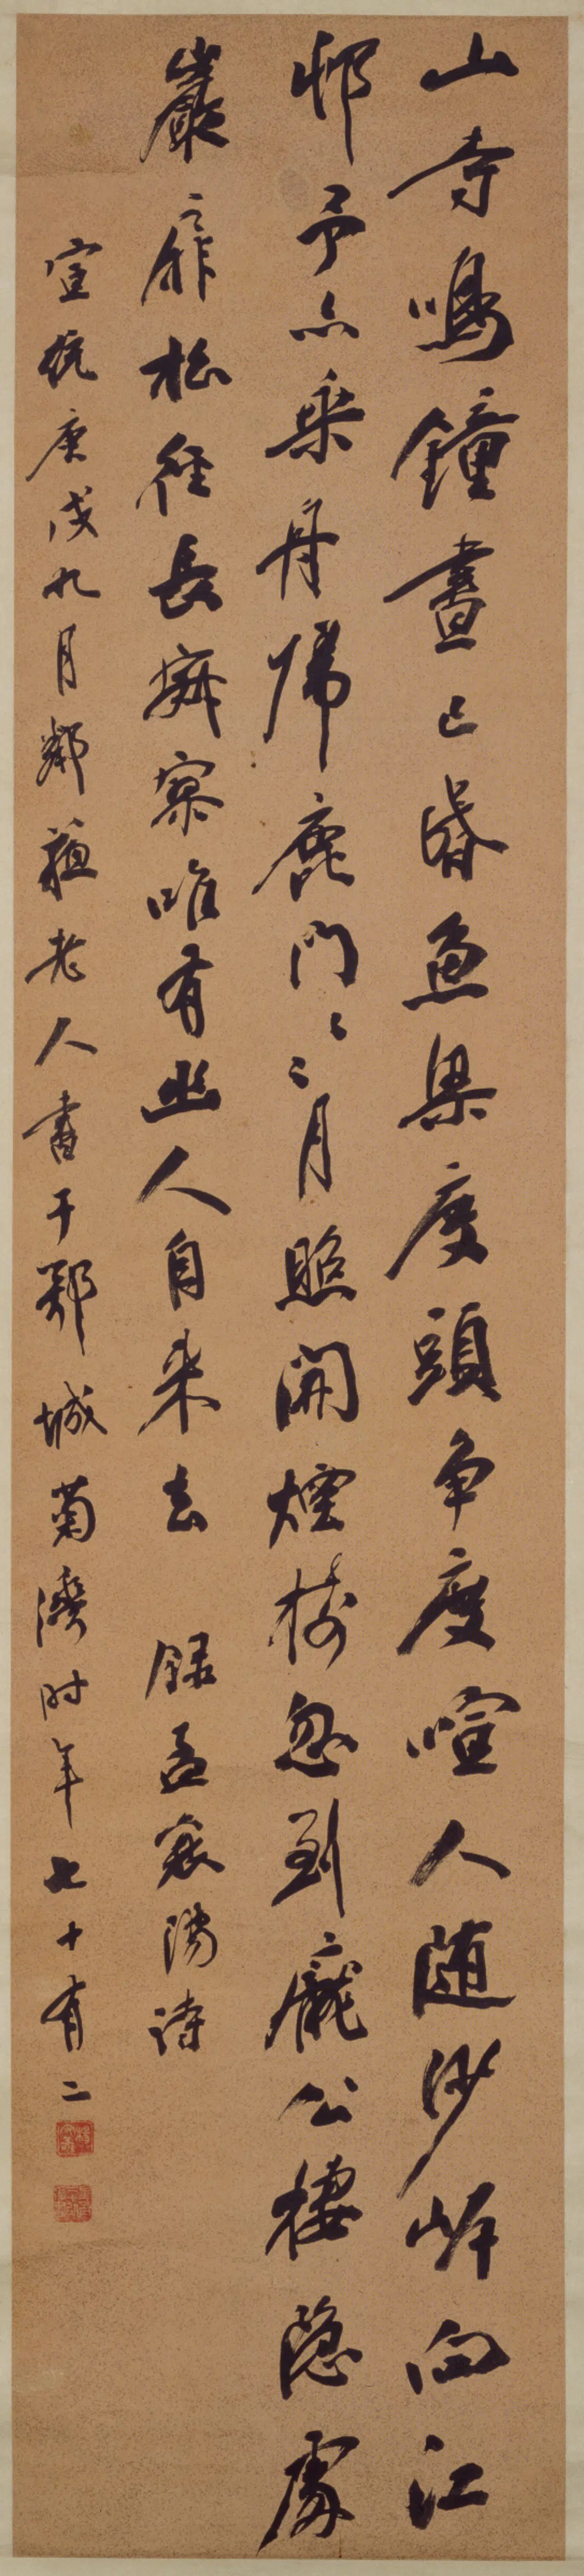 山寺鳴鐘晝已昏魚梁度頭爭度喧人随沙岸向江
邨予亦乘舟歸鹿門〻〻月照開煙樹忽到龐公棲隱處
巖扉松徑長寂寥唯有幽人自来去 録孟襄陽詩
宣統庚戌九月鄰蘇老人書于鄂城菊灣時年七十有二